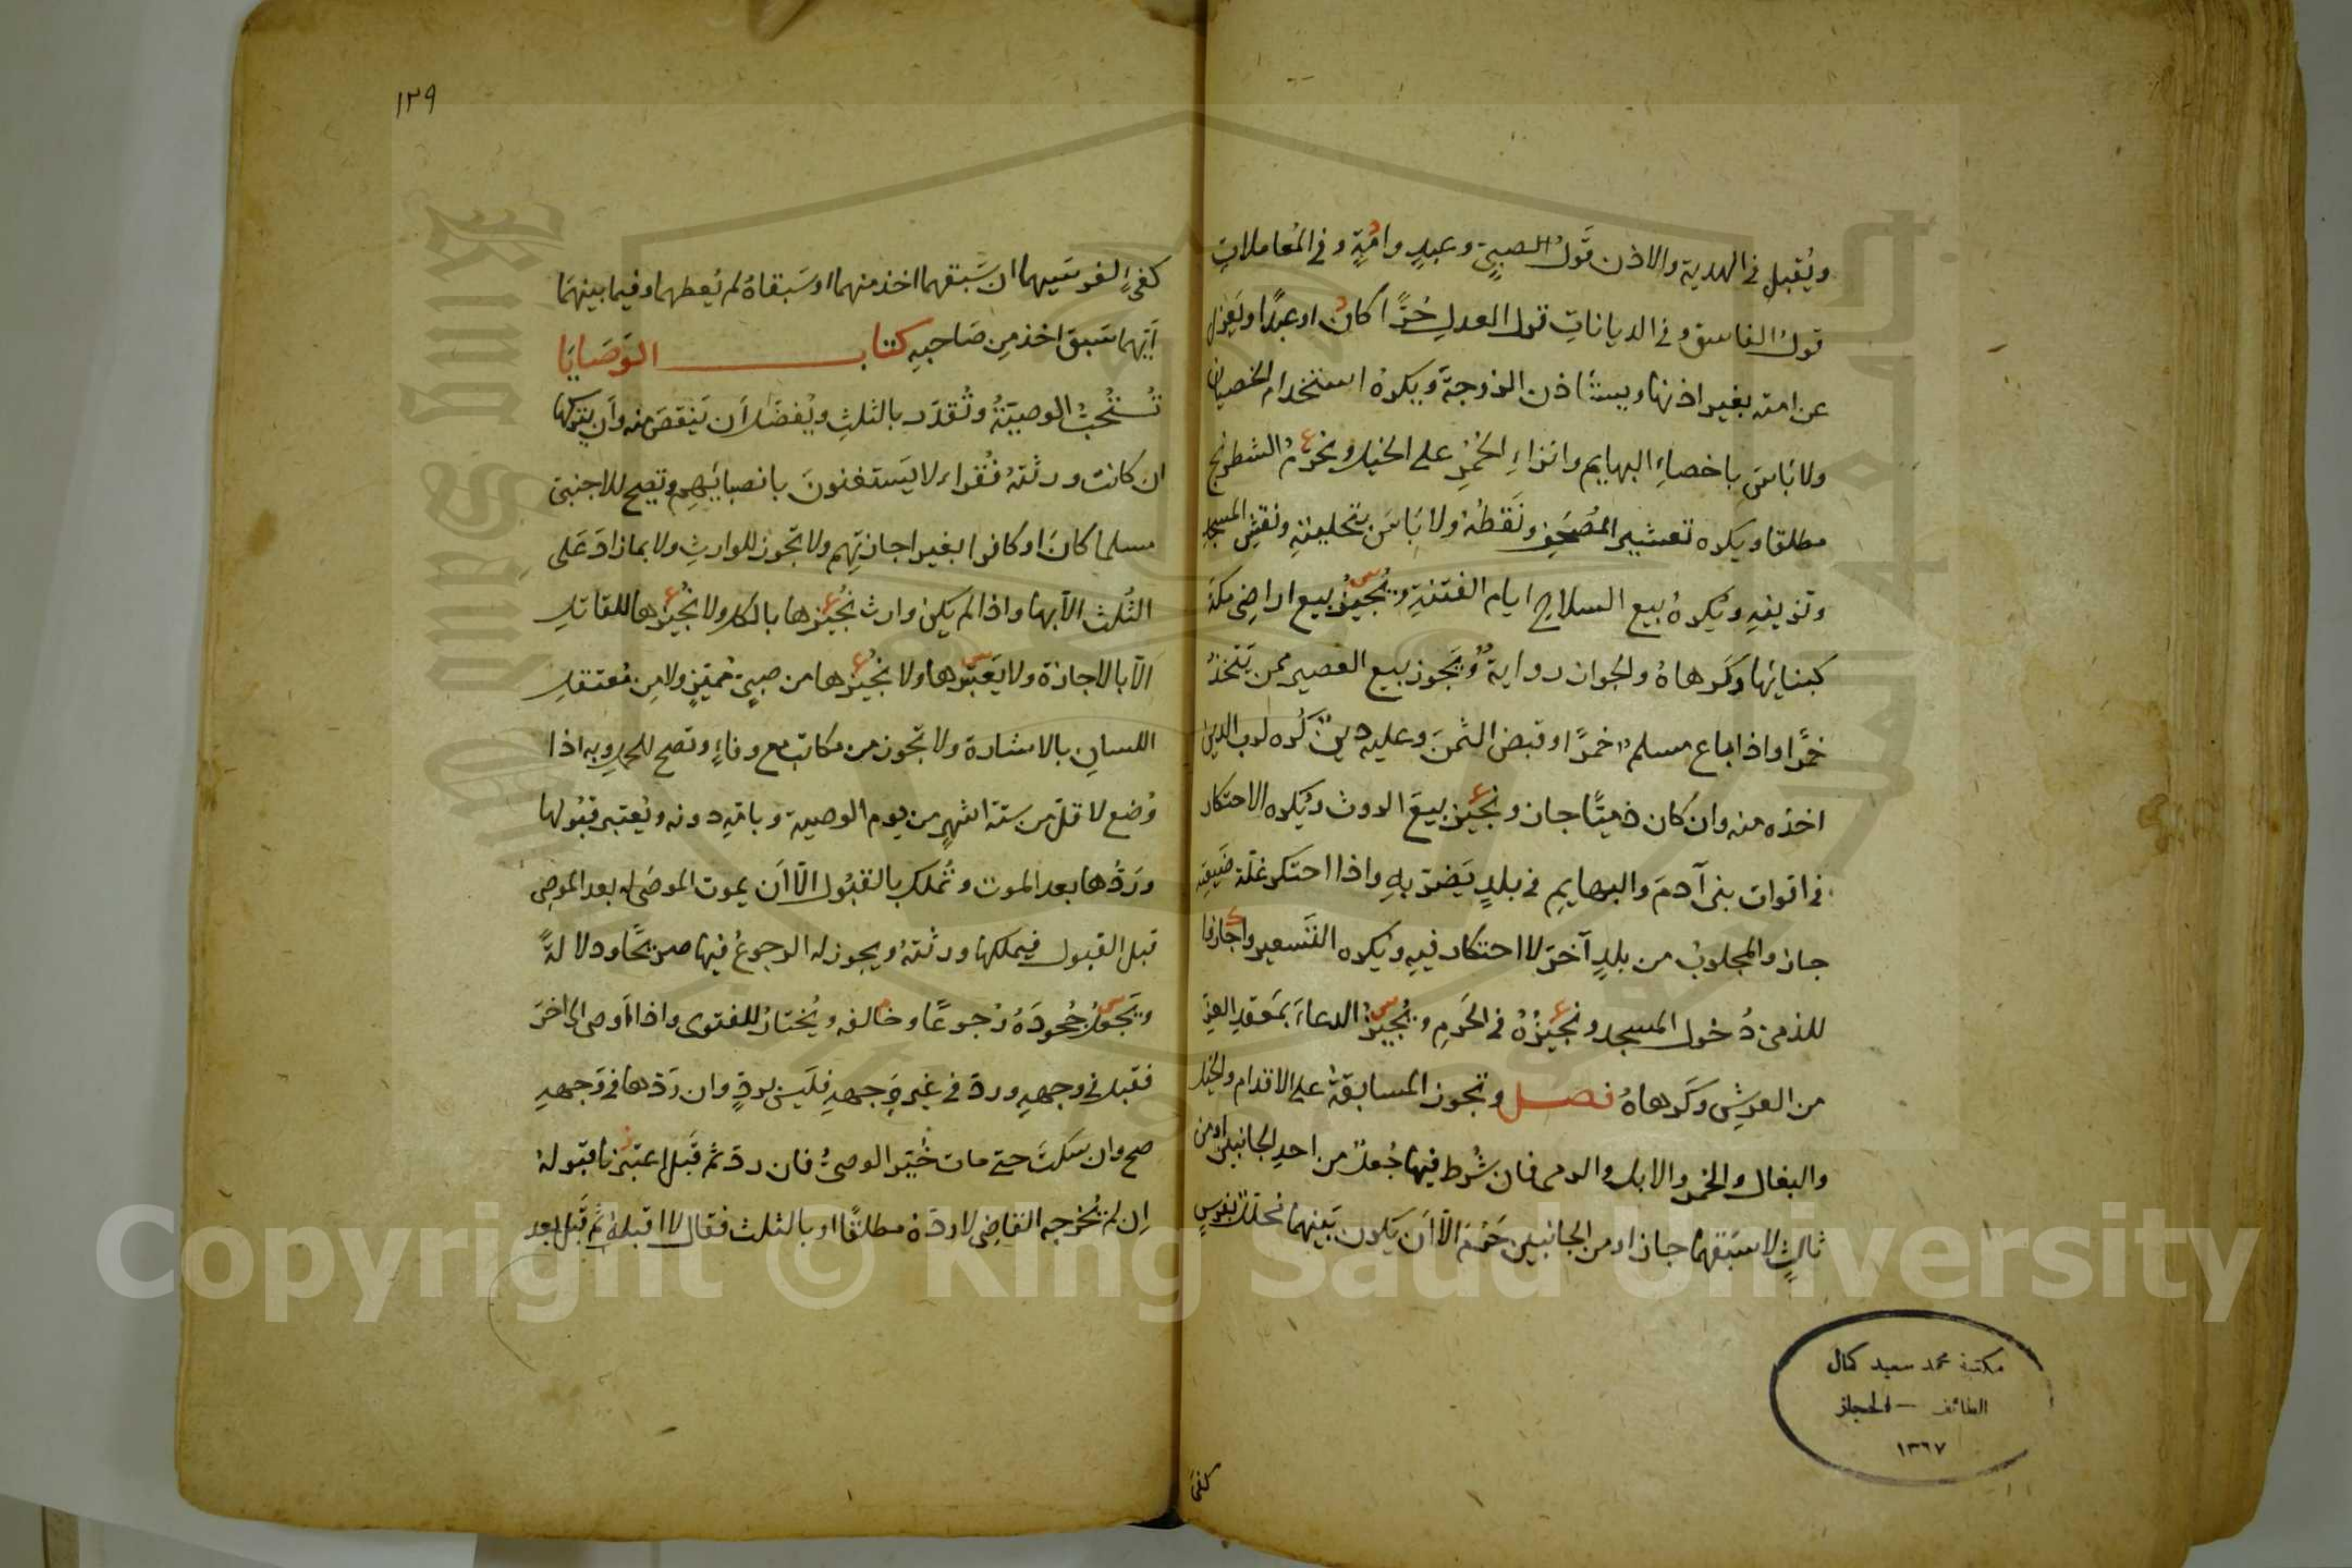 ويُقبل في الهدية والاذن قَولُ الصبيّ وعبدٍ وامَةٍ وفي المُعاملاتِ
قولُ الفاسق وفي الدياناتِ قول العدلِ حُرًّا كان اوعبدًا ويَعزل
عن امته بغير اذنها ويستأذن الزوجةَ ويكره استخدام الخصيان
ولا بَاسَ باخصاءِ البهايم وانزاءِ الحُمُرِ على الخيل ونحرّمُ الشطرنج
مطلقا ويكره تعشير المُصحَفِ ونَقطُهُ ولا بَاسَ بتحليتِهِ ونقشِ المسجدِ
وتزيينِهِ ويُكره بيع السلاح ايام الفتنةِ ويُجيزُ بيع اراضِى مكةَ
كبنائِها وكَرهاهُ والجواز روايةٌ ويَجوز بيع العصير ممن يَتّخذُ
خمرًا واذا باع مسلم خمرًا وقبض الثمنَ وعليه دينٌ كُره لرب الدين
اخذه منه وان كان ذميًّا جاز ونجيز بيعَ الروث ويُكره الاحتكار
في اقوات بنى آدمَ والبهايمِ في بلدٍ يَضرّ بهِ واذا احتكر غلّة ضَيعَتِهِ
جاز والمجلوبُ من بلدٍ آخرَ لا احتكار فيهِ ويُكره التَسعير واجازنا
للذمىّ دُخول المسجد ونجيزُهُ في الحَرمِ ويُجيزُ الدعاءَ بمَعقدِ العِزّ
من العرشِ وكَرهاهُ فصل وتجوز المسابقةُ على الاقدام والخيل
والبغال والحمر والابل والرمى فان شُرط فيها جُعلٌ من احدِ الجانبين اومن
ثالثٍ لاسبَقِهما جاز او من الجانبين حَرُمَ الّا اَن يَكون بَينهما محلّلٌ بفرسٍ
كفئٍ
مكتبة محمد سعيد كمال
الطائف — الحجاز
١٣٦٧
١٣٩
كفئٍ لفرسَيهما ان سَبَقهما اخذ منهما او سَبَقاهُ لم يُعطِهما وفيما بينهمَا
اَيّهما سَبق اخذ مِن صَاحبِهِ كتاب الوَصَايَا
تُستحَبُّ الوصيّةُ وتُقدّر بالثلثِ ويُفضّل اَن يَنقصَ منه واَن يتركها
ان كانت ورثتهُ فُقراء لا يَستغنونَ بانصبائِهِم وتصح للاجنبىّ
مسلما كانَ او كافرا بغير اجازتِهم ولا تجوز للوارثِ ولا بما زادَ عَلى
الثُلث الّا بها واذا لم يكن وارث نُجيزها بالكل ولا نُجيزها للقاتل
الّا بالاجازة ولا يَعتبرها ولا نجيزها من صبىٍّ مُميّزٍ ولا مِن مُعتقلِ
اللسانِ بالاشارة ولا تجوز من مكاتبٍ مع وفاءٍ وتصح للحمل وبه اذا
وُضع لاقلّ من ستة اشهرٍ من يوم الوصية وبامّهِ دونه ويُعتبر قبُولها
ورَدُّها بعد الموت وتُملك بالقبُول الّا اَن يموت الموصَى له بعد الموصِى
قبل القبول فيملكها ورثتهُ ويجوز له الرجوعُ فيها صريحًا ودلالةً
ويَجعلُ جُحودَهُ رُجوعًا وخالفه ويُختارُ للفتوى واذا اَوصى الى اخرَ
فقبل في وجهِهِ وردّ في غيرِ وَجهِهِ فليَس بردٍّ وان رَدّها في وَجهِهِ
صح وان سَكتَ حتى مات خُيّر الوصىُّ فان ردّ ثم قَبل اعتبرنا قبَولهُ
اِن لم يُخرجه القاضِى لا ردّهُ مطلقًا او بالثلث فقال لا اقبلهُ ثم قَبل بعد
Copyright © King Saud University